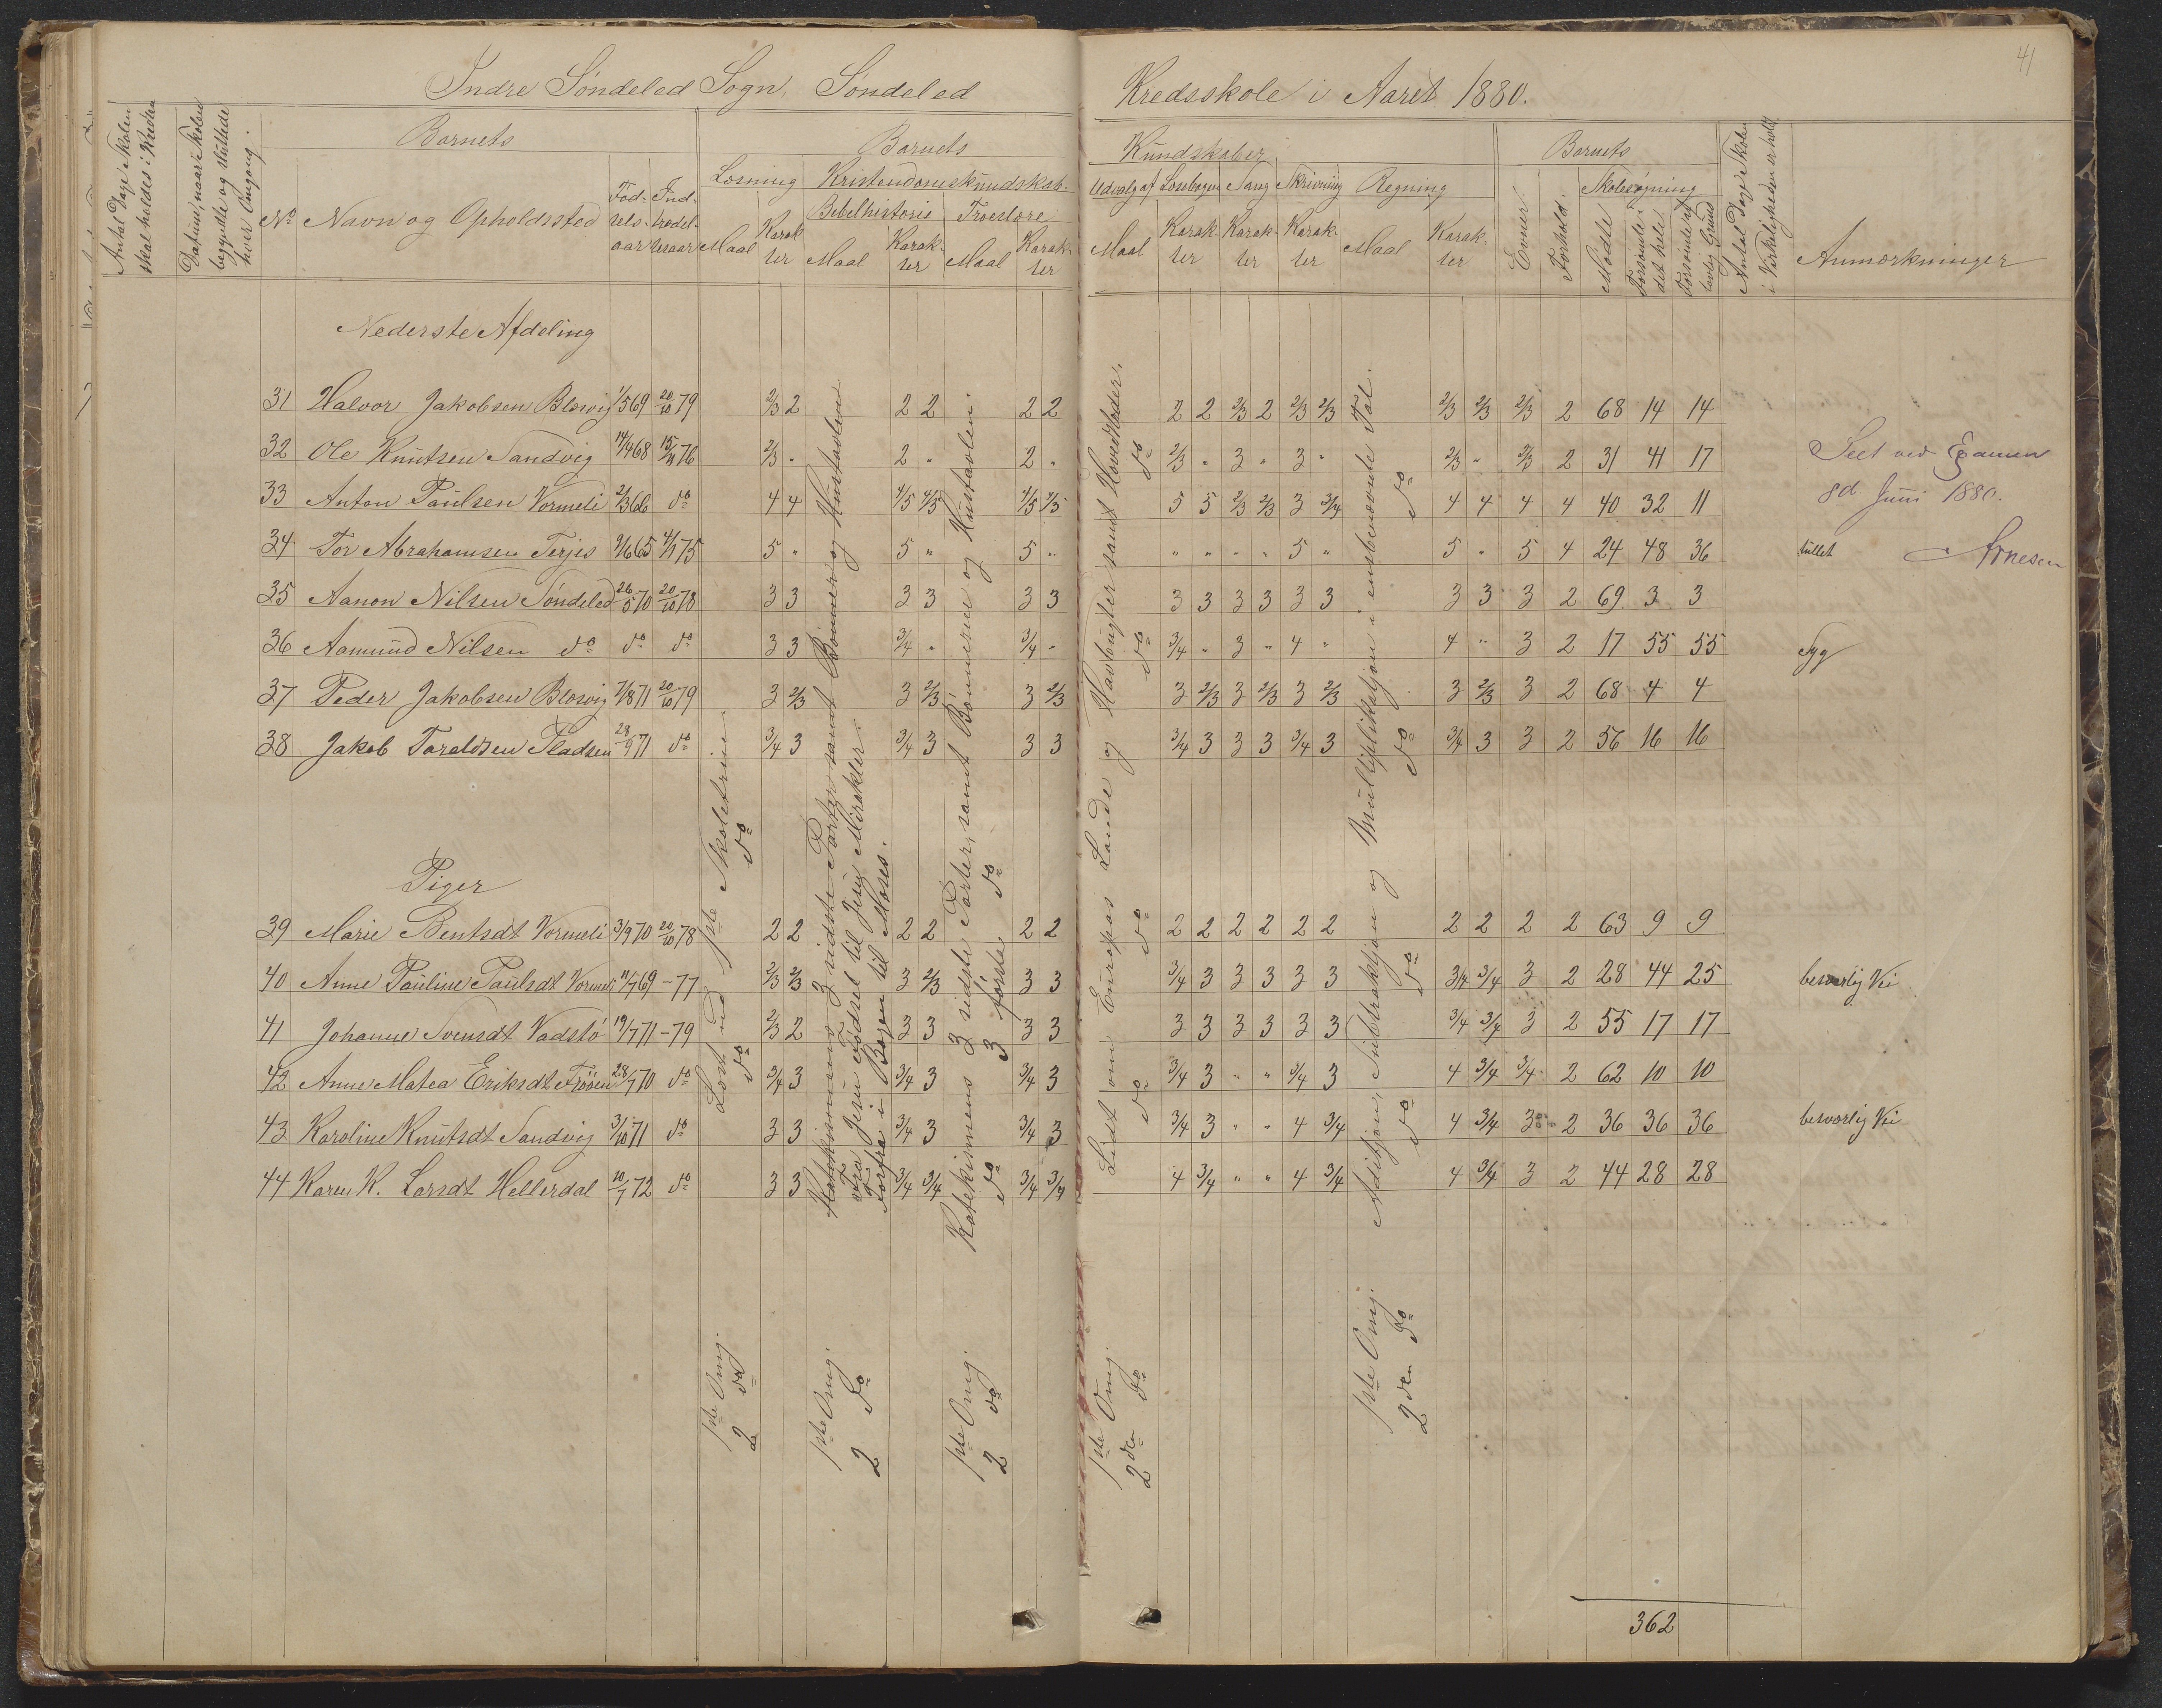 41
Indre Søndeled Sogn, Søndeled Kredsskole i Aaret 1880.
Antal Dage Skolen
skal holdes i Kredsen
Datum, naar Skolen
begyndte og sluttede
hver Omgang.
Barnets
No
Navn og Opholdssted
Fød-
sels-
aar
Ind-
trædel-
sesaar
Barnets Kundskaber i
Læsning
Maal
Karak
ter
Kristendomskundskab.
Bibelhistorie
Maal
Karak-
ter
Troeslære
Maal
Karak-
ter
Udvalg af Læsebogen
Maal
Karak-
ter
Sang
Karak-
ter
Skrivning
Karak-
ter
Regning
Maal
Karak-
ter
Barnets
Evner.
Forhold.
Skolesøgning
Mødte
Forsømte i
det hele
Forsømte af
lovlig Grund
Antal Dage Skolen
i Virkeligheden er holdt.
Anmærkninger
Nederste Afdeling
31 Halvor Jakobsen Blæsvig 1/5 69 20/10 79 2/3 2 2 2 2 2 2 2 2/3 2 2/3 2/3 2/3 2/3 2/3 2 68 14 14
32 Ole Knutsen Sandvig 14/4 68 15/11 76 2/3 " 2 " 2 " 2/3 " 3 " 3 " 2/3 " 2/3 2 31 41 17
33 Anton Paulsen Vormeli 2/3 66 do 4 4 4/5 4/5 4/5 4/5 5 5 2/3 2/3 3 3/4 4 4 4 4 40 32 11
34 Tor Abrahamsen Terjes 9/6 65 4/1 75 5 " 5 " 5 " " " " " 5 " 5 " 5 4 24 48 36
35 Aanon Nilsen Søndeled 26/5 70 20/10 78 3 3 3 3 3 3 3 3 3 3 3 3 3 3 3 2 69 3 3
36 Aamund Nilsen do do do 3 3 3/4 " 3/4 " 3/4 " 3 " 4 " 4 " 3 2 17 55 55 Syg
37 Peder Jakobsen Blæsvig 7/8 71 20/10 79 3 2/3 3 2/3 3 2/3 3 2/3 3 2/3 3 2/3 3 2/3 3 2 68 4 4
38 Jakob Taraldsen Pladsen 28/9 71 do 3/4 3 3/4 3 3 3 3/4 3 3 3 3/4 3 3/4 3 3 2 56 16 16
Seet ved Examen
8d Juni 1880.
Arnesen
Piger
39 Marie Bentsdt Vormeli 3/9 70 20/10 78 2 2 2 2 2 2 2 2 2 2 2 2 2 2 2 2 63 9 9
40 Anne Pauline Paulsdt Vormeli 11/7 69 - 77 2/3 2/3 3 2/3 3 3 3/4 3 3 3 3 3 3/4 3/4 3 2 28 44 25 besværlig Vei
41 Johanne Svensdt Vadstø 19/7 71 - 79 2/3 2 3 3 3 3 3 3 3 3 3 3 3/4 3/4 3 2 55 17 17
42 Anne Matea Eriksdt 28/7 70 do 3/4 3 3/4 3 3/4 3 3/4 3 " " 3/4 3 4 3/4 3/4 2 62 10 10
43 Karoline Knutsdt Sandvig 3/10 71 do 3 3 3/4 3 3/4 3 3/4 3 " " 4 3/4 4 3/4 3 2 36 36 36 besværlig Vei
44 Karen K. Larsdt Hellerdal 10/7 72 do 3 3 3/4 3/4 3/4 3/4 4 3/4 " " 4 3/4 4 3/4 3 2 44 28 28
1ste Omg. Læst ud 1ste Skoletrin.
2de do do do
1ste Omg. Katekismens 3 sidste Parter samt Bønner og Hustavlen
Fra Jesu Fødsel til Jesu Mirakler.
2 do Forfra i Bogen til Moses.
1ste Omg. Katekismens 3 sidste Parter, samt Bønnerne og Hustavlen.
2 do do 3 første do
1ste Omg. Lidt om Europas Lande og Havbugter samt Hovedstæder.
2den do do do do do
1ste Omg. Aditjon, Subtraktjon og Multipliktsjon i ensbenævnte Tal.
2den do do do do do
362